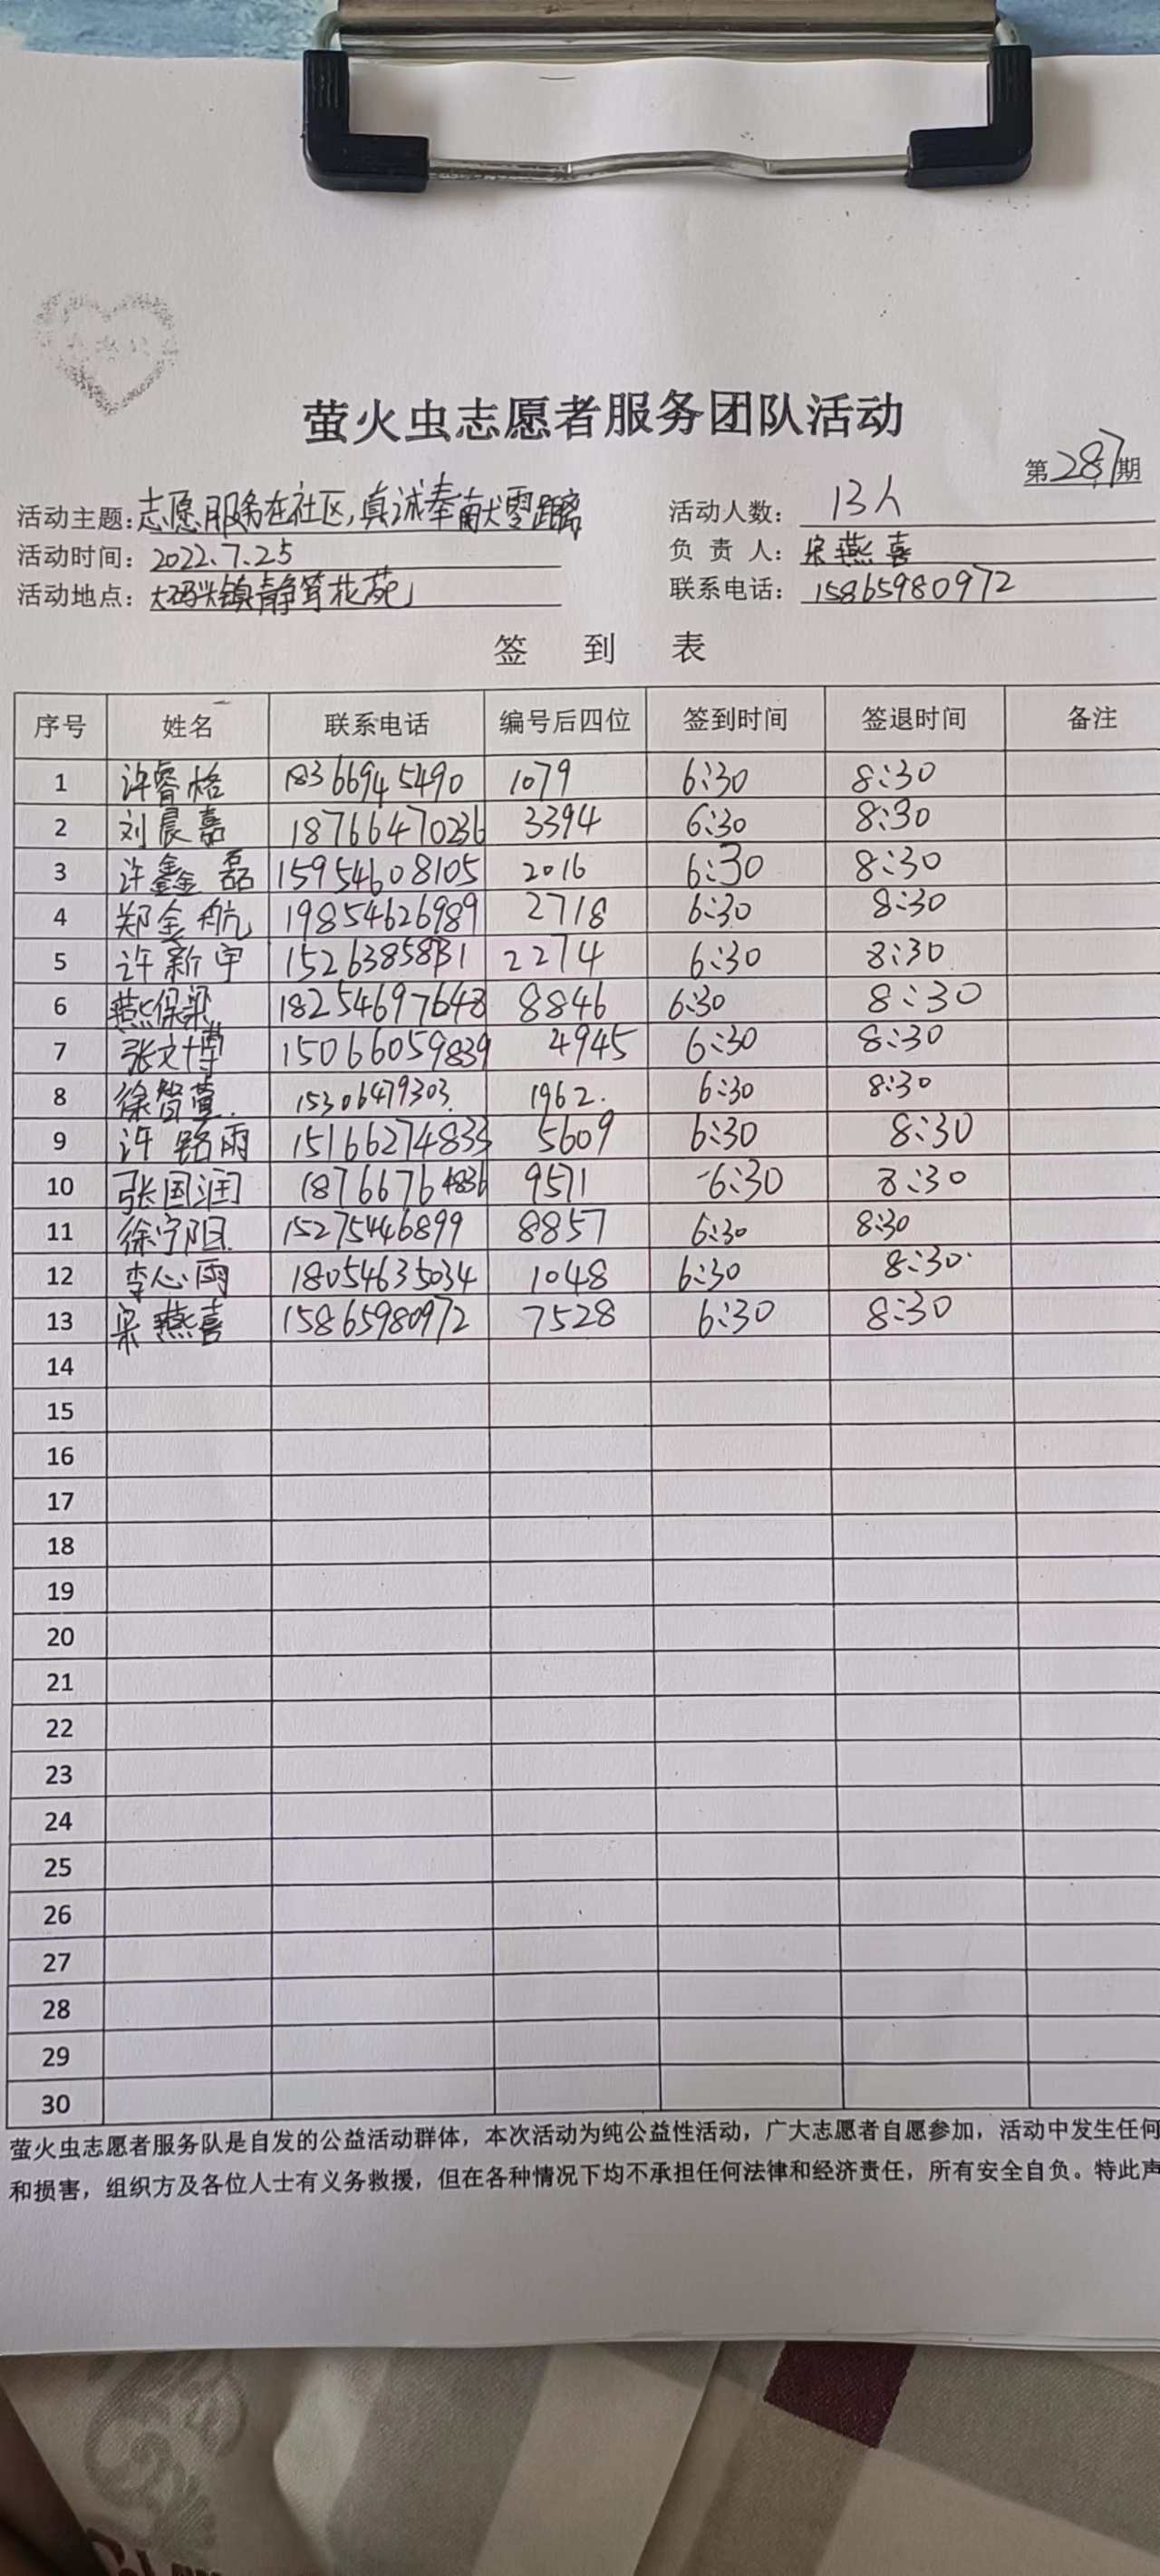 萤火虫志愿者服务团队活动
第287期
活动主题：志愿服务在社区，真诚奉献零距离 活动人数：13人
活动时间：2022.7.25 负责人：宋燕喜
活动地点：大码头镇静等花苑 联系电话：15865980972
签到表
序号 姓名 联系电话 编号后四位 签到时间 签退时间 备注
1 许睿格 18366945490 1079 6:30 8:30
2 刘晨嘉 18766470236 3394 6:30 8:30
3 许鑫磊 15954608105 2016 6:30 8:30
4 郑金航 19854626989 2718 6:30 8:30
5 许新宇 2274 6:30 8:30
6 燕保梁 18254697648 8846 6:30 8:30
7 张文博 15066059839 4945 6:30 8:30
8 徐智萱. 15306479303. 1962. 6:30 8:30
9 许路雨 15166274833 5609 6:30 8:30
10 张国润 18766764836 9571 6:30 8:30
11 徐宁阳. 15275446899 8857 6:30 8:30
12 李心雨 18054635034 1048 6:30 8:30
13 宋燕喜 15865980972 7528 6:30 8:30
14
15
16
17
18
19
20
21
22
23
24
25
26
27
28
29
30
萤火虫志愿者服务队是自发的公益活动群体，本次活动为纯公益性活动，广大志愿者自愿参加，活动中发生任何
和损害，组织方及各位人士有义务救援，但在各种情况下均不承担任何法律和经济责任，所有安全自负。特此声